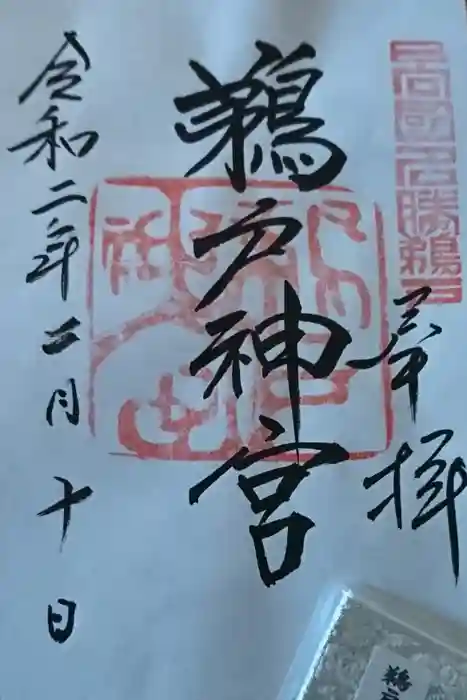 日向國名勝鵜戸
奉拝
鵜戸神宮
令和二年二月十日
鵜